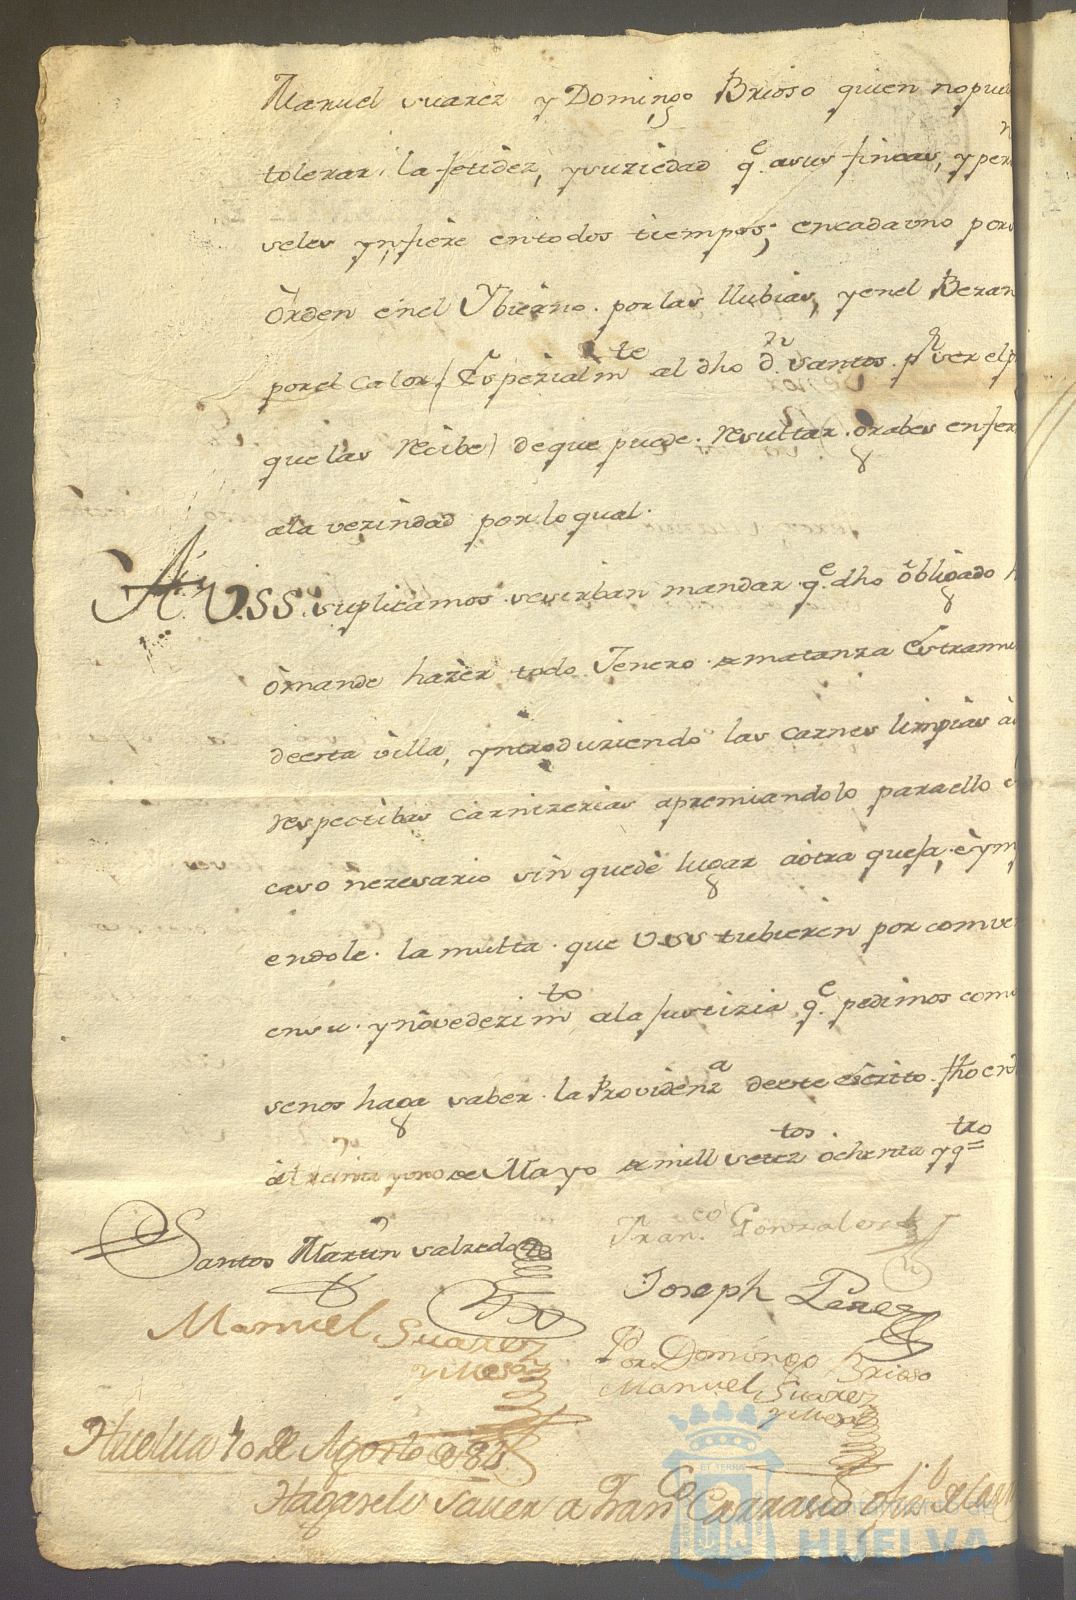 Manuel suarez y Domingo Brioso quien nopue
tolerar la fetidez, ysuziedad q.e asus fincas, y per
seles ynfiere entodos tiempos; encadauno por
òrden enel Ybierno por las llubias, yenel Beran
porel calor (Espezialm.te al dho d.n santos p.r ser el
que las recibe) deque puede resultar grabes enfer
ala vezindad por lo qual.
A V.SS. suplicamos sesirban mandar q.e dho òbligado
òmande hazer todo Jenero de matanza Estramu
deesta villa, yntroduziendo las carnes limpias à
respectibas carnizerias apremiandolo paraello
caso nezesario sin quedè lugar aòtra quefa, èym
endole la multa que VSS tubieren por comve
ensu ynòvedezim.to ala justizia q.e pedimos como
senos haga saber la Providenz.a deeste escrito fho en
àtreinta yuno de Mayo de mill setez.tos òchenta yq.tro
Santos Martin salzedo
Fran.co Gonzales
Joseph Perez
Manuel Suarez
y Mesa
Por Domingo Brioso
Manuel Suarez
y Mesa
Huelua 10 de Agosto de 84
Hagasele sauer a Fran.co Carrasco
ET TERRÆ
Ayuntamiento de
HUELVA